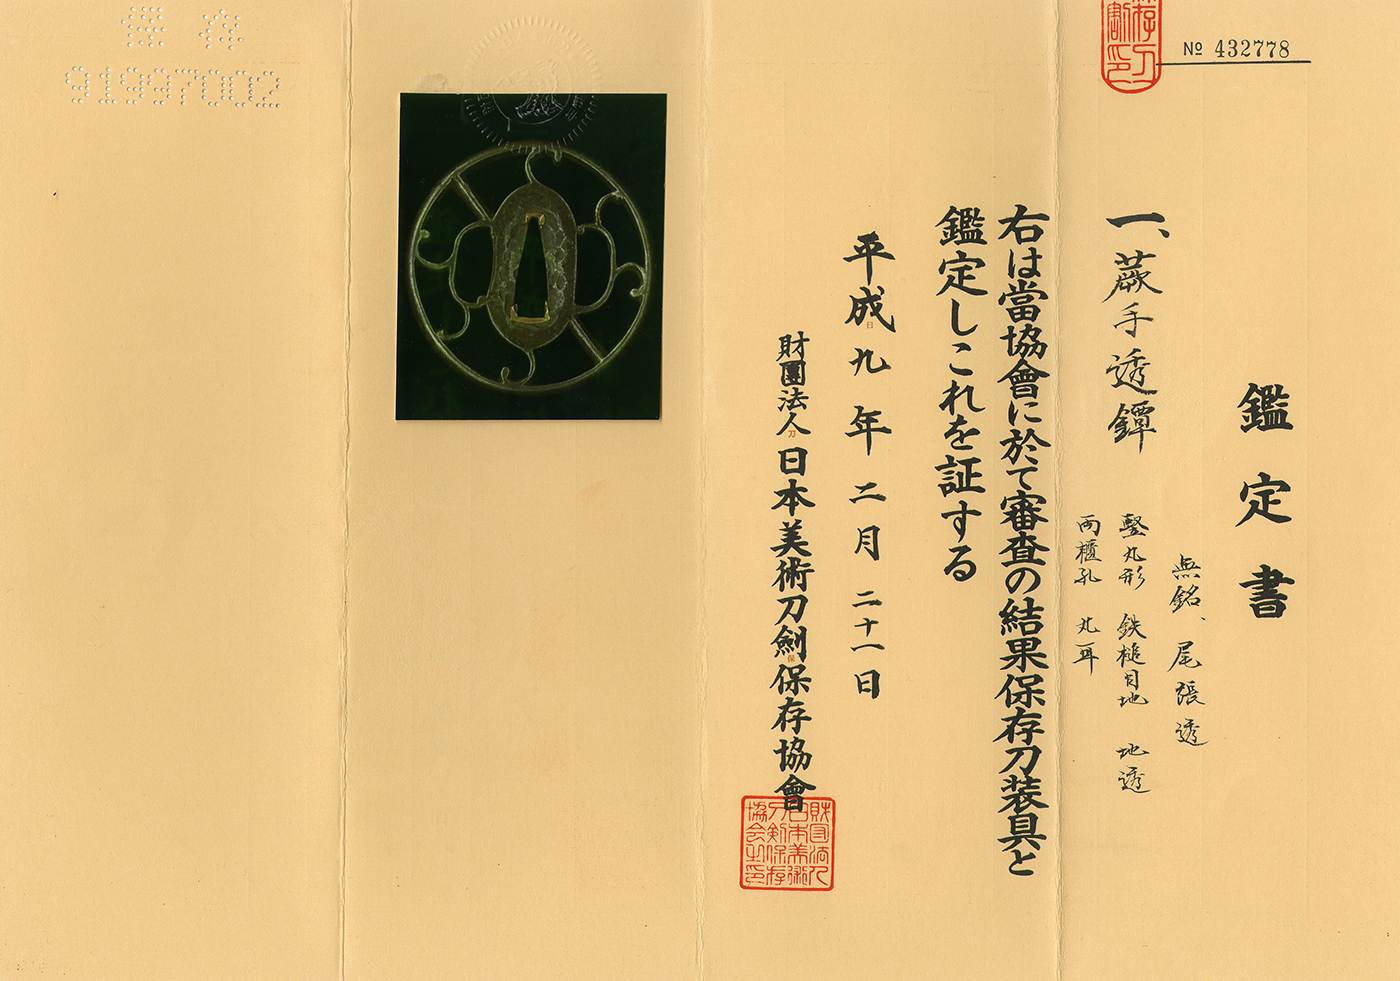 № 432778
鑑定書
一、蕨手透鐔
無銘、尾張透
竪丸形 鉄槌目地 地透
両櫃孔 丸耳
右は當協會に於て審査の結果保存刀装具と
鑑定しこれを証する
平成九年二月二十一日
財團法人日本美術刀劍保存協會
財団法人
日本美術
刀剣保存
協会之印
保存
91997002